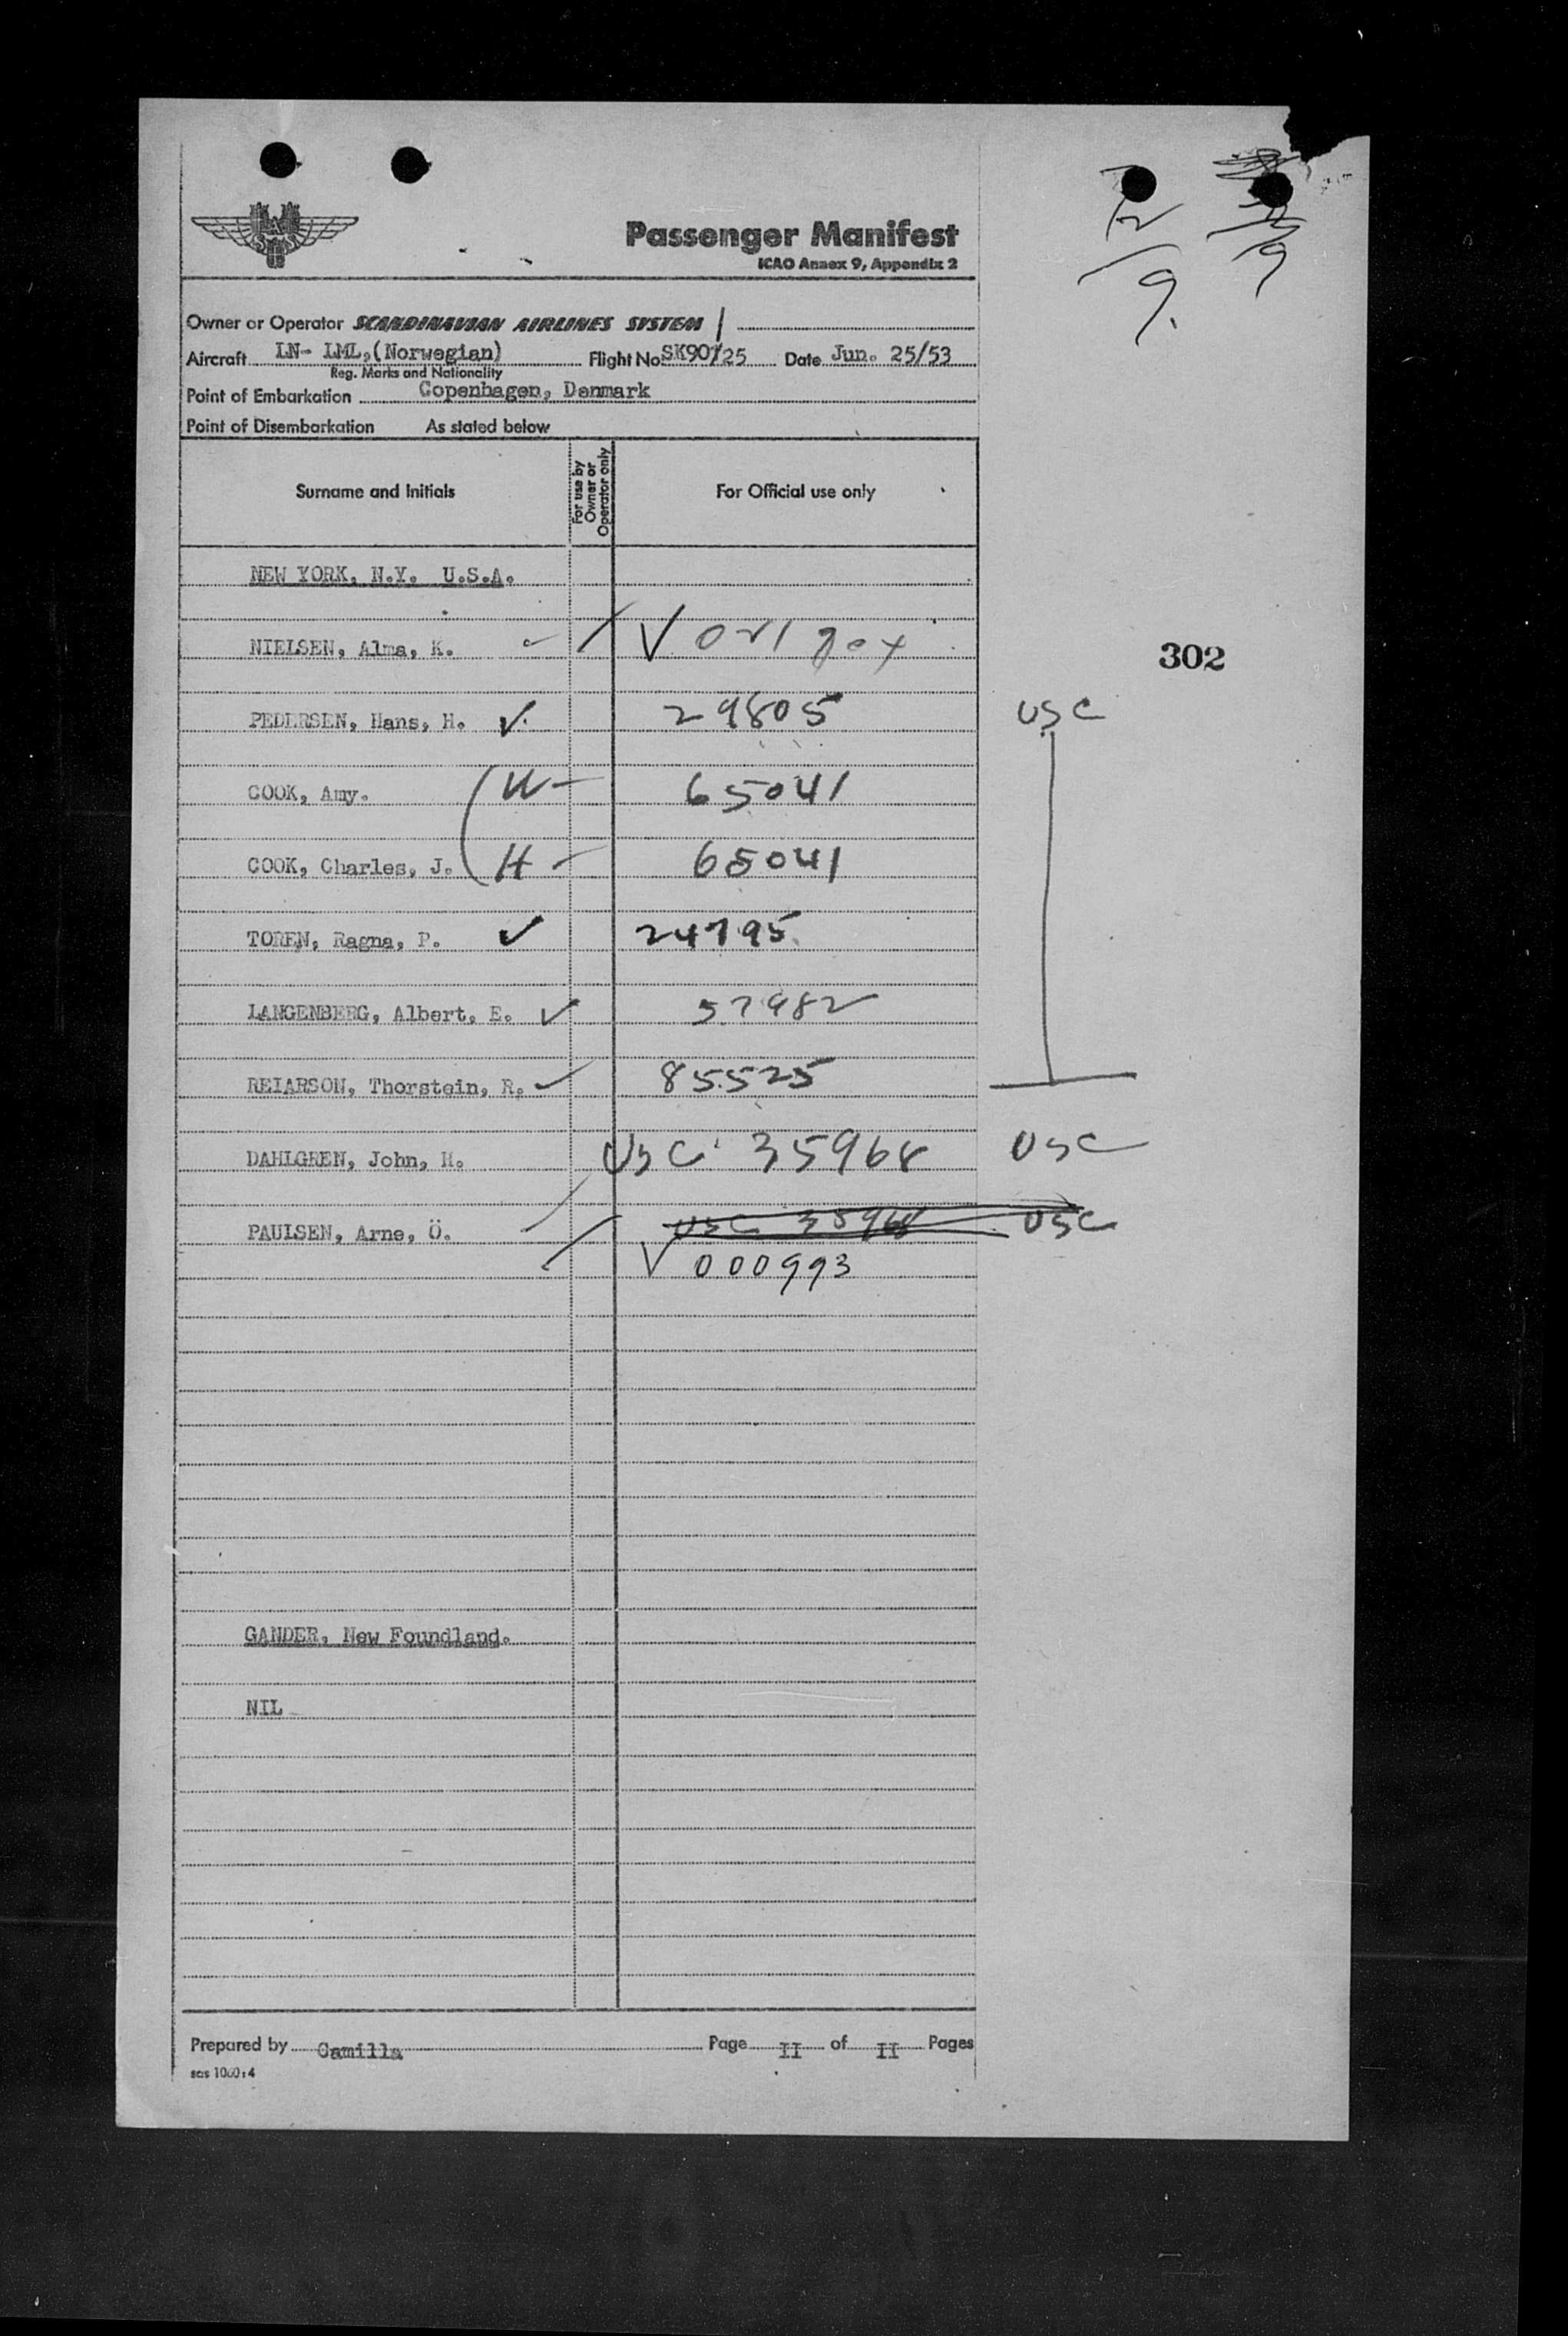 SAS
Passenger Manifest
ICAO Annex 9, Appendix 2
Owner or Operator SCANDINAVIAN AIRLINES SYSTEM
Aircraft LN- LML,(Norwegian) Flight No SK907/25 Date Jun. 25/53
Reg. Marks and Nationality
Point of Embarkation Copenhagen, Denmark
Point of Disembarkation As stated below
Surname and Initials For use by Owner or Operator only For Official use only
NEW YORK, N.Y. U.S.A.
NIELSEN, Alma, K.
302
PEDERSEN, Hans, H. 29805 USC
COOK, Amy. W 65041
COOK, Charles, J. H 65041
TOREN, Ragna, P. 24795
LANGENBERG, Albert, E. 57982
REIARSON, Thorstein, R. 85525
DAHLGREN, John, H. USC 35968 USC
PAULSEN, Arne, Ö. USC 35968 USC
V 000993
GANDER, New Foundland.
NIL
Prepared by Camilla Page II of II Pages
sas 1000:4